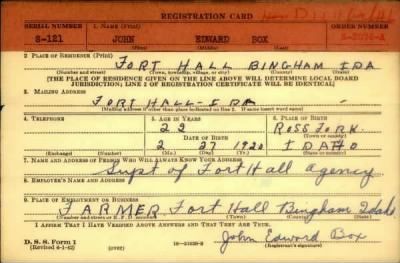 REGISTRATION CARD
SERIAL NUMBER 1. NAME (Print) ORDER NUMBER
S-121 JOHN EDWARD BOX
(First) (Middle) (Last)
2. PLACE OF RESIDENCE (Print)
FORT HALL BINGHAM IDA
(Number and street) (Town, township, village, or city) (County) (State)
[THE PLACE OF RESIDENCE GIVEN ON THE LINE ABOVE WILL DETERMINE LOCAL BOARD
JURISDICTION; LINE 2 OF REGISTRATION CERTIFICATE WILL BE IDENTICAL]
3. MAILING ADDRESS
FORT HALL-IDA
[Mailing address if other than place indicated on line 2. If same insert word same]
4. TELEPHONE 5. AGE IN YEARS 6. PLACE OF BIRTH
22 ROSS FORK
DATE OF BIRTH (Town or county)
2 27 1920 IDAHO
(Exchange) (Number) (Mo.) (Day) (Yr.) (State or country)
7. NAME AND ADDRESS OF PERSON WHO WILL ALWAYS KNOW YOUR ADDRESS
Supt of Fort Hall Agency
8. EMPLOYER'S NAME AND ADDRESS
9. PLACE OF EMPLOYMENT OR BUSINESS
FARMER Fort Hall Bingham Idaho
(Number and street or R. F. D. number) (Town) (County) (State)
I AFFIRM THAT I HAVE VERIFIED ABOVE ANSWERS AND THAT THEY ARE TRUE.
D. S. S. Form 1
(Revised 6-1-42) (over) John Edward Box
(Registrant's signature)